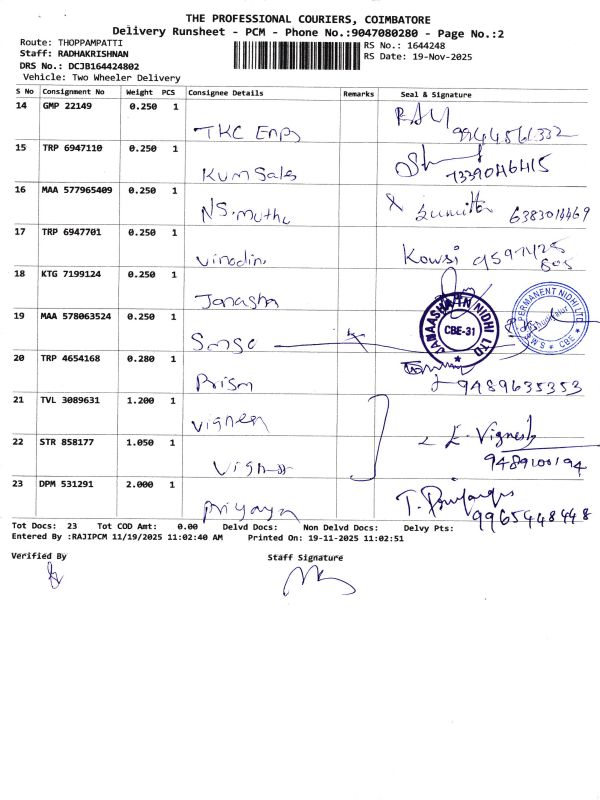 THE PROFESSIONAL COURIERS, COIMBATORE
Delivery Runsheet - PCM - Phone No.:9047080280 - Page No.:2
Route: THOPPAMPATTI RS No.: 1644248
Staff: RADHAKRISHNAN RS Date: 19-Nov-2025
DRS No.: DCJB164424802
Vehicle: Two Wheeler Delivery
S No Consignment No Weight PCS Consignee Details Remarks Seal & Signature
14 GMP 22149 0.250 1
TKC Enps
15 TRP 6947110 0.250 1
Kum Sales 7339046415
16 MAA 577965409 0.250 1
NS. Muthu
17 TRP 6947701 0.250 1
Vinodin Kowsi
18 KTG 7199124 0.250 1
Janasha
19 MAA 578063524 0.250 1
JANAASHAATN NIDHI LTD CBE-31
PERMANENT NIDHI LTD CBE
20 TRP 4654168 0.280 1
Prism 9489635353
21 TVL 3089631 1.200 1
Vignesh
22 STR 858177 1.050 1
E. Vignesh
9489100194
23 DPM 531291 2.000 1
Priyaya 9965448448
Tot Docs: 23 Tot COD Amt: 0.00 Delvd Docs: Non Delvd Docs: Delvy Pts:
Entered By :RAJIPCM 11/19/2025 11:02:40 AM Printed On: 19-11-2025 11:02:51
Verified By Staff Signature